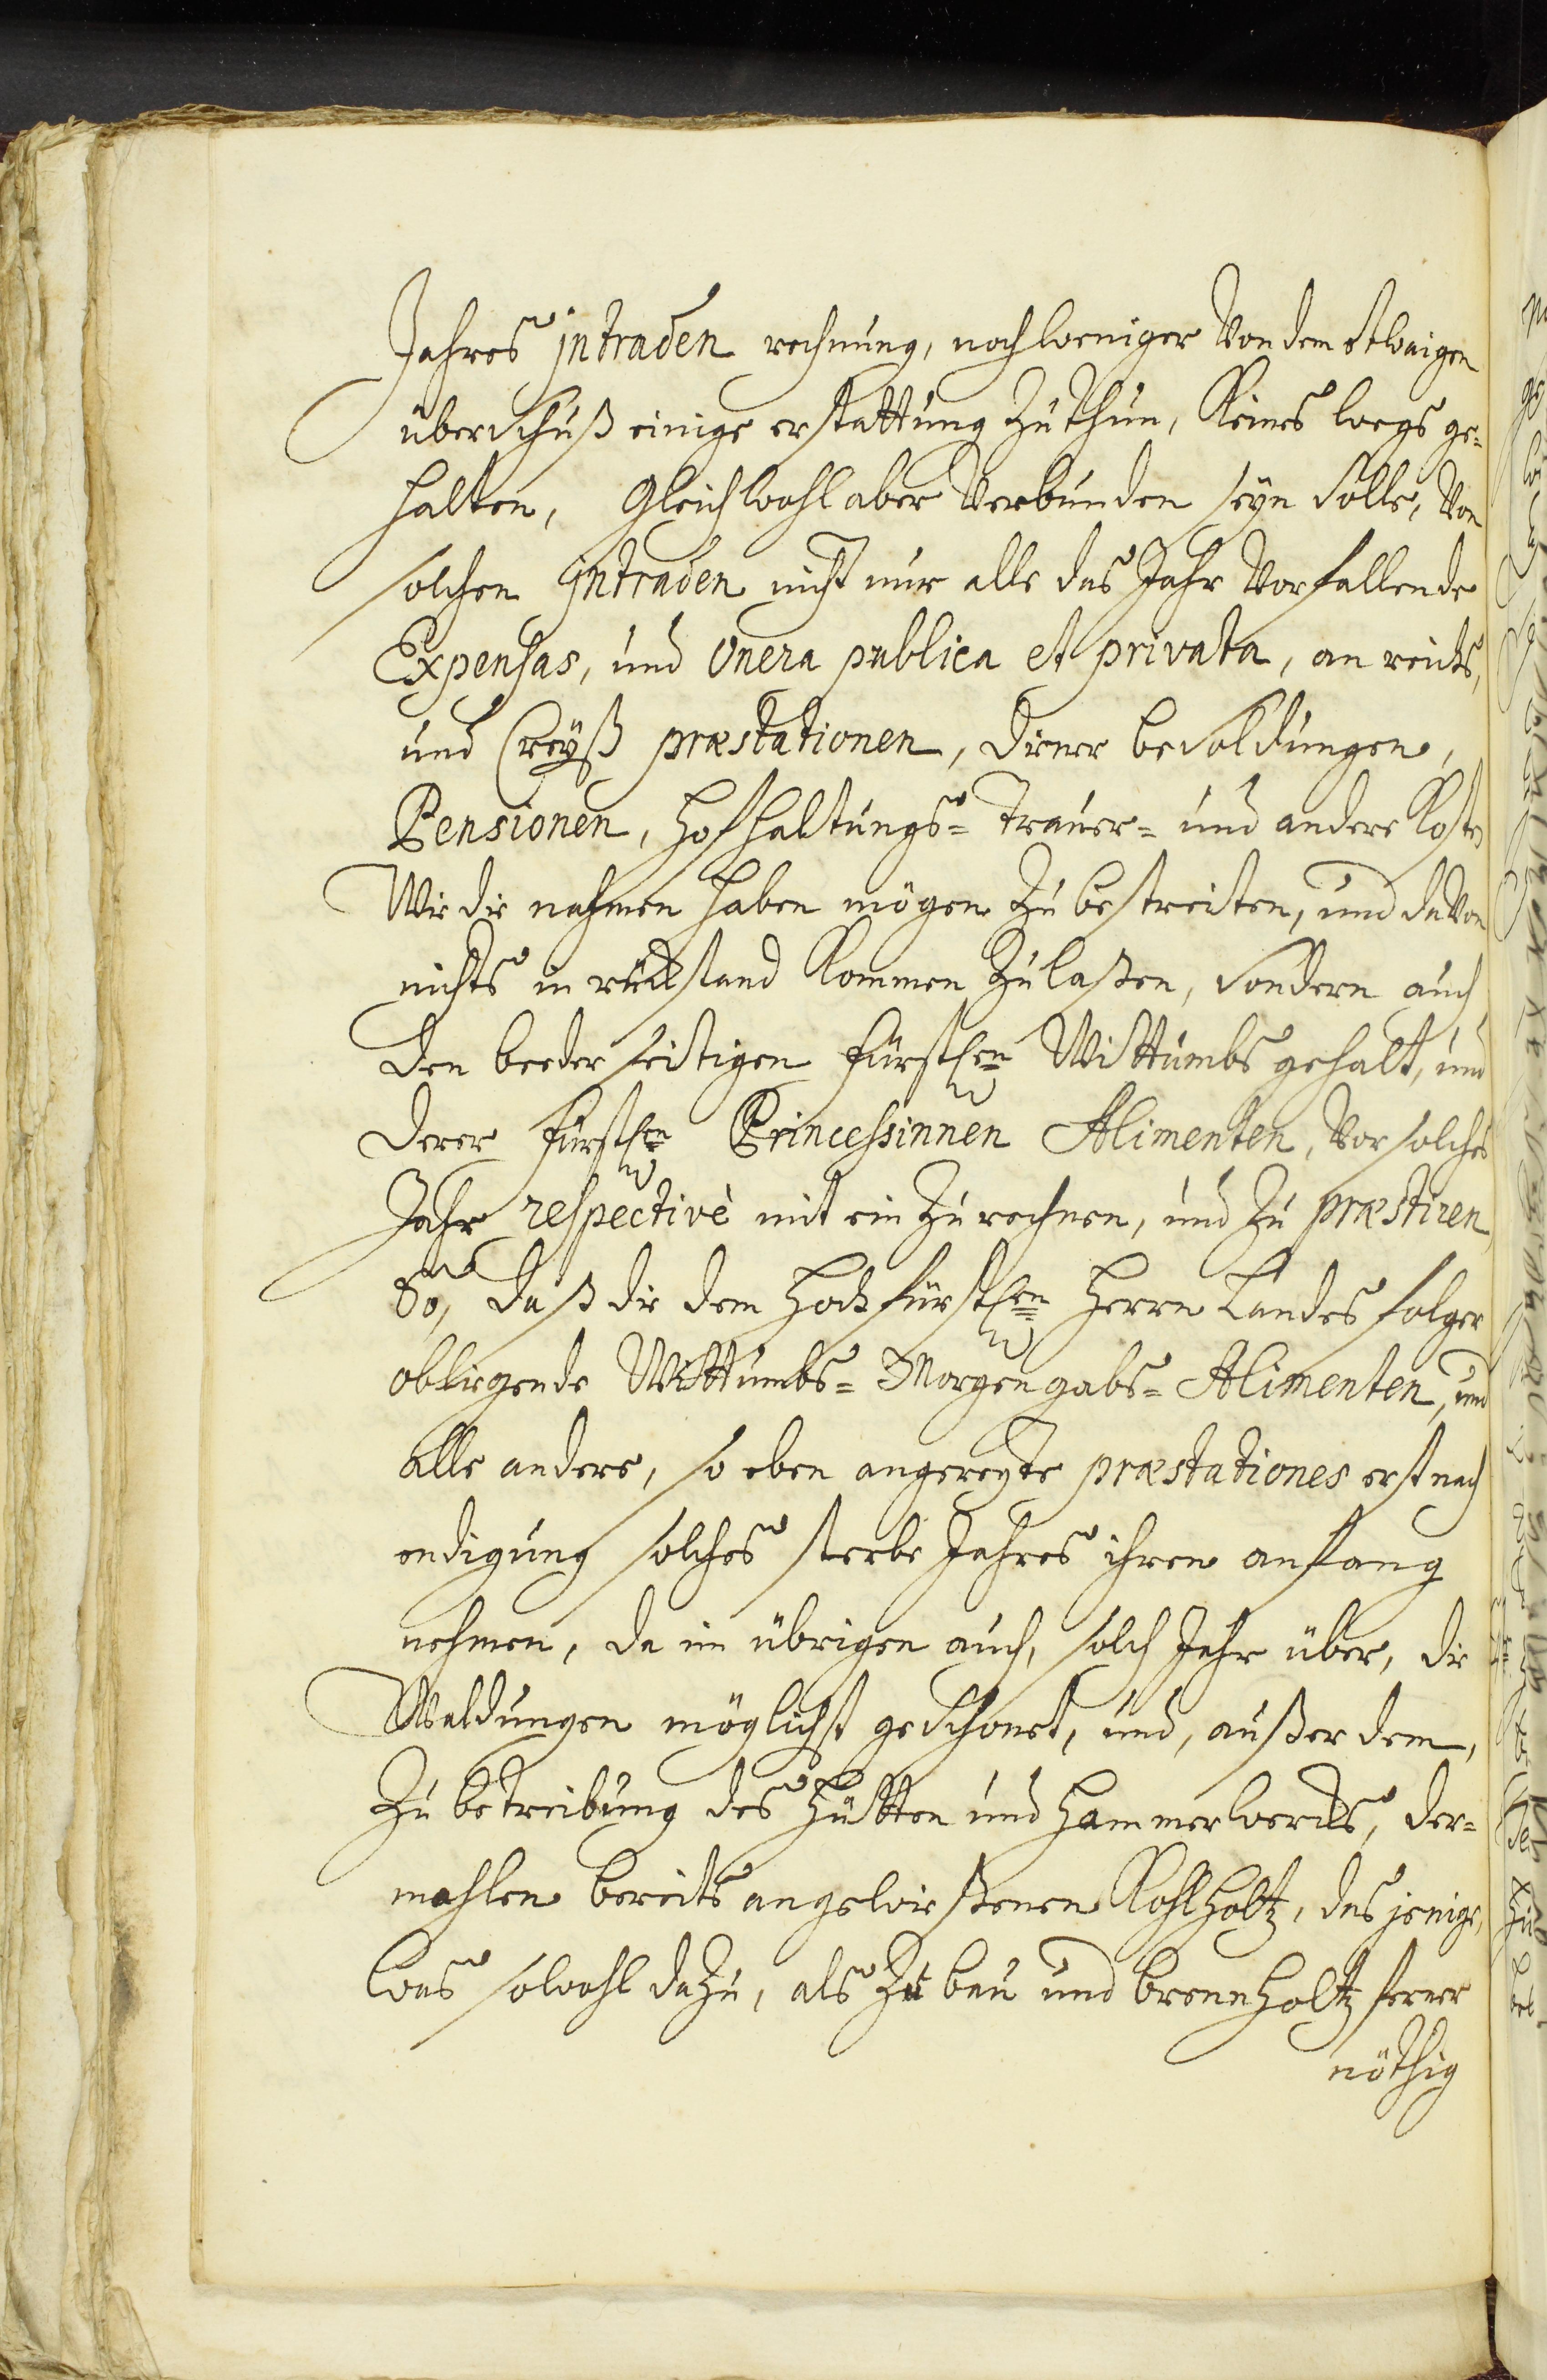 Jahres intraden rechnung, noch weniger von dem etwaigen
überschuß einige erstattung zu thun, keines wegs ge=
halten, gleichwohl aber verbunden seyn solle, von
solchen intraden nicht nur alle das Jahr vorfallende
Expensas, und onera publica et privata, an reichs,
und Creyß præstationen, diener besoldungen,
Pensionen, Hofhaltungs= Trauer= und andere Kosten
Wie die nahmen haben mögen zu bestreiten, und davon
nichts in rückstand kommen zu laßen, sondern auch
den beeder seitigen fürstlen Wittumbs gehalt, und
derer fürstlen Princessinnen Alimenten, vor solches
Jahr respectivè mit ein zu rechnen, und zu præstiren
So, daß die dem Hochfürstlen Herrn Landes folger
obliegende Wittumbs= Morgengabs= Alimenten, und
alle andere, so eben angeregte præstationes erst nach
endigung solches sterbe Jahres ihren anfang
nehmen, da im übrigen auch, solch Jahr über, die
Waldungen möglichst geschonet, und, außer dem,
zu betreibung des Hütten und Hammerwercks, der=
mahlen bereits angewießenen Kohlholtz, das jenige,
was sowohl dazu, als zu bau und brennholtz ferner
nöthig